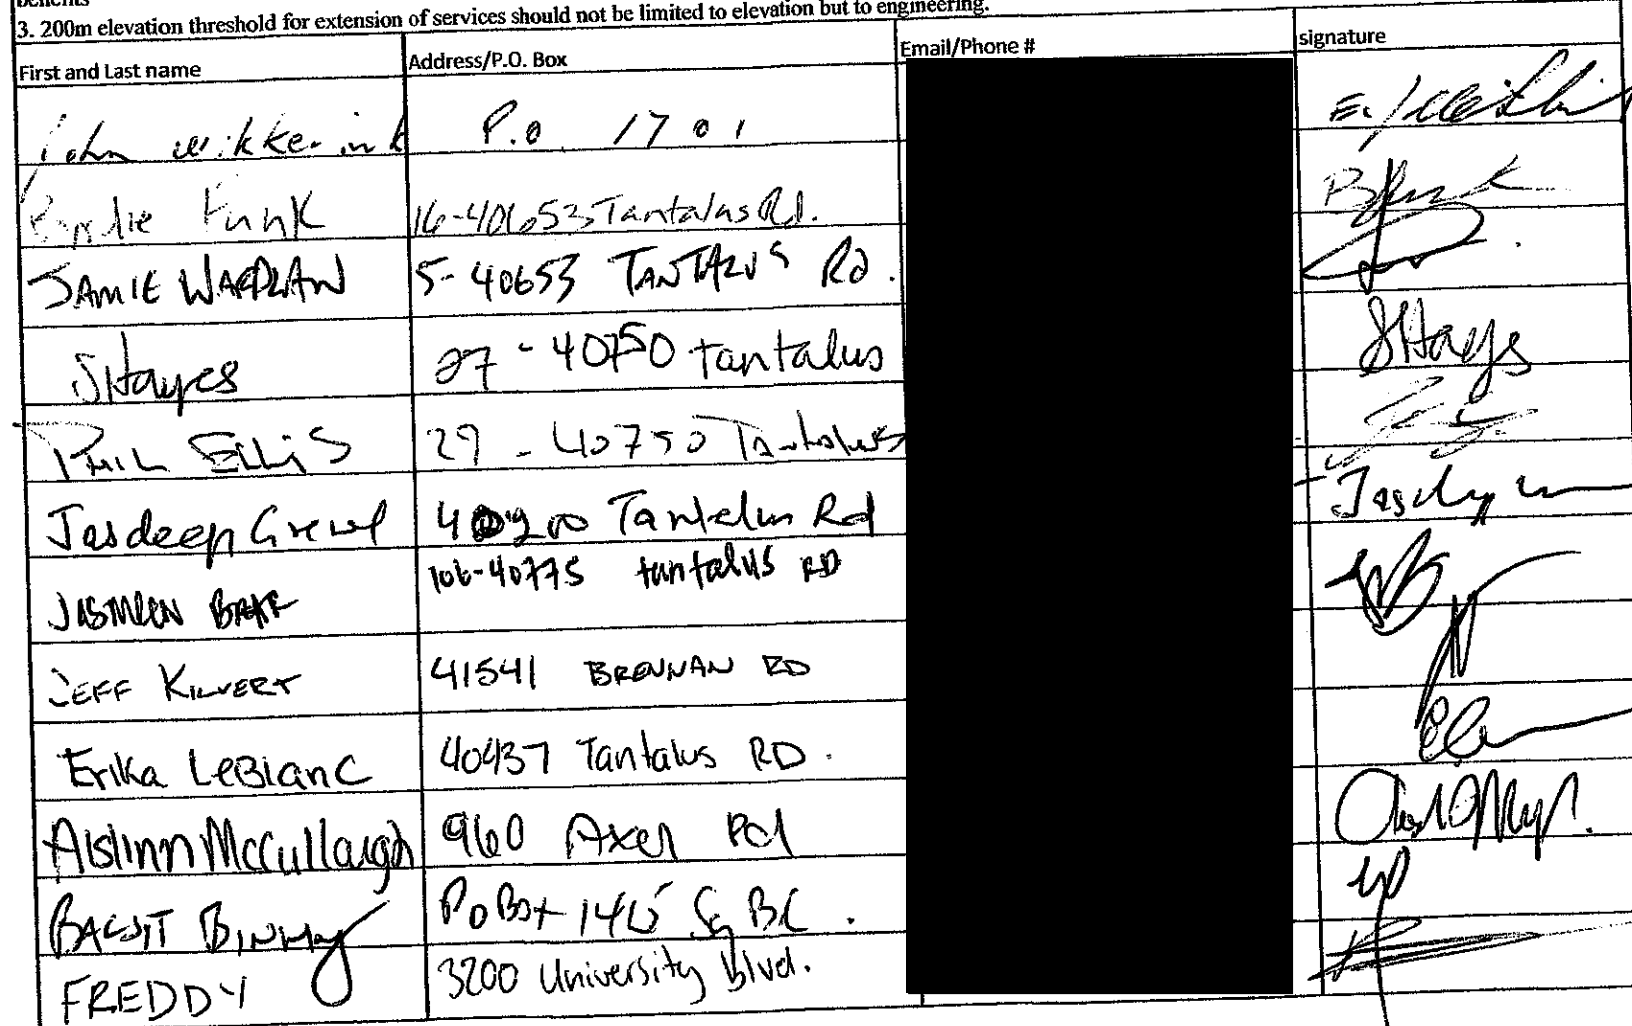 benefits
3. 200m elevation threshold for extension of services should not be limited to elevation but to engineering.
First and Last name Address/P.O. Box Email/Phone # signature
John Wikkerink P.O. 1701
Brodie Funk 16-40653 Tantalus Rd.
JAMIE WARDLAW 5-40653 TANTALUS Rd.
SHayes 27-40750 tantalus SHayes
PHIL ELLIS 29-40750 Tantalus
Jasdeep Grewal Tantalus Rd
JASMEEN 106-40775 tantalus RD
JEFF KILVERT 41541 BRENNAN RD
Erika LeBlanc 40437 Tantalus RD.
Aislinn McCullaugh 960 Axen Rd
PO Box BC.
FREDDY 3200 University Blvd.